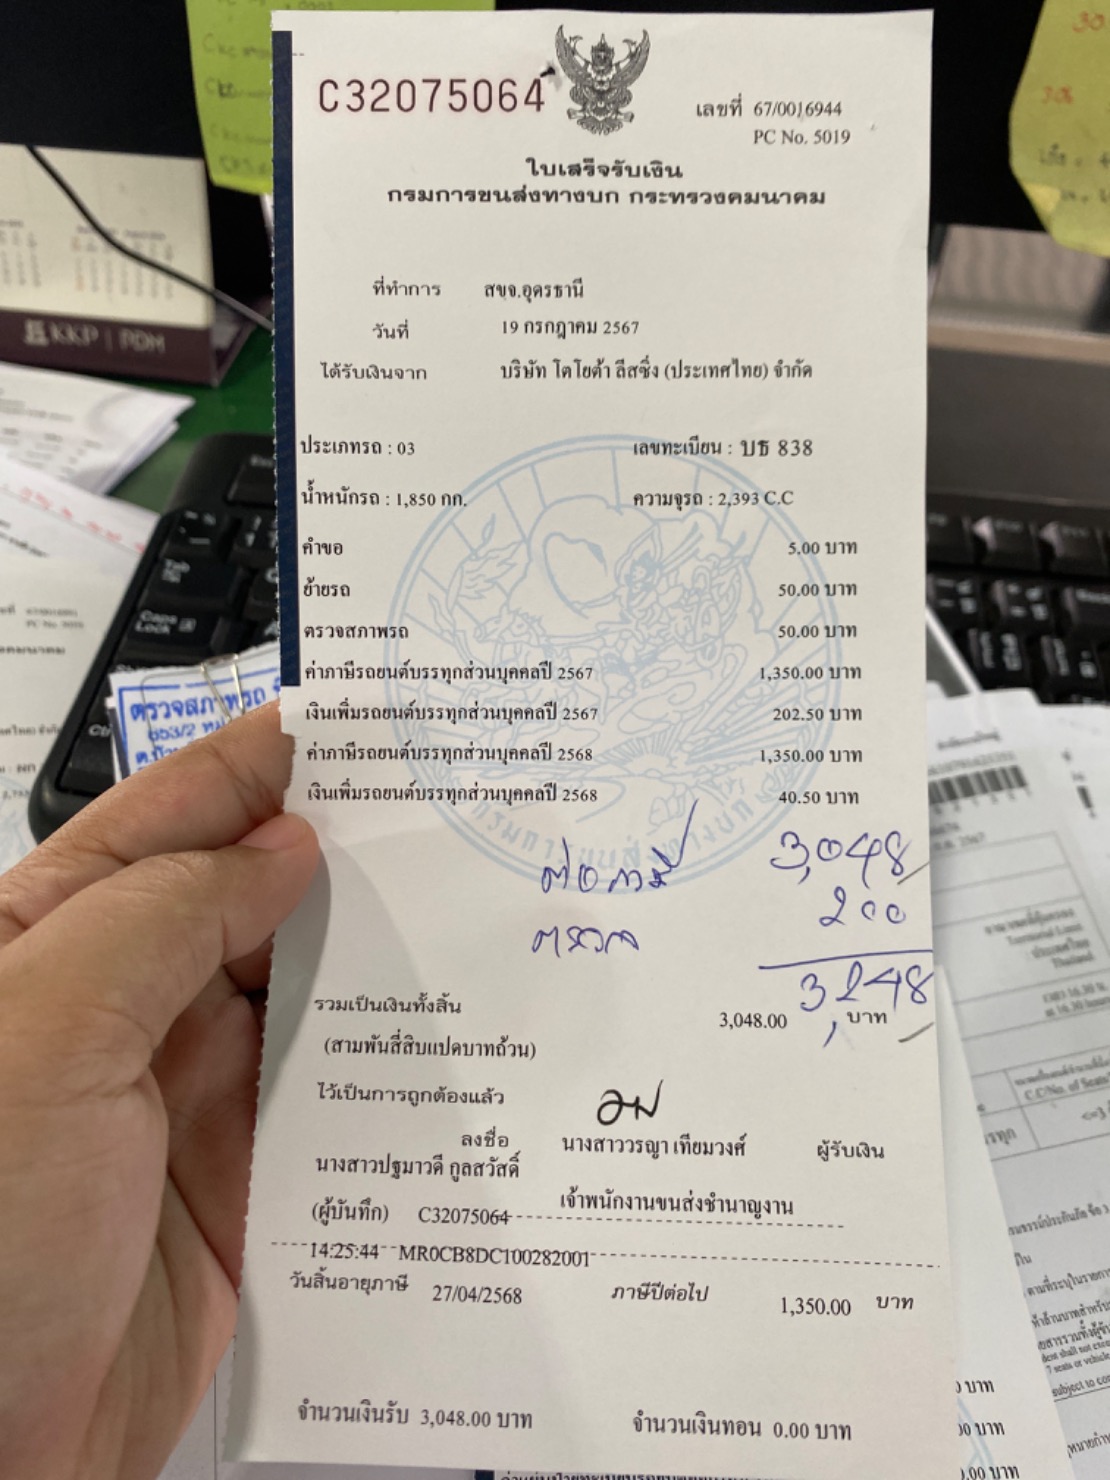 C32075064
เลขที่ 67/0016944
PC No. 5019
ใบเสร็จรับเงิน
กรมการขนส่งทางบก กระทรวงคมนาคม
ที่ทำการ สขจ.อุดรธานี
วันที่ 19 กรกฎาคม 2567
ได้รับเงินจาก บริษัท โตโยต้า ลีสซิ่ง (ประเทศไทย) จำกัด
ประเภทรถ : 03 เลขทะเบียน : บธ 838
น้ำหนักรถ : 1,850 กก. ความจุรถ : 2,393 C.C
คำขอ 5.00 บาท
ย้ายรถ 50.00 บาท
ตรวจสภาพรถ 50.00 บาท
ค่าภาษีรถยนต์บรรทุกส่วนบุคคลปี 2567 1,350.00 บาท
เงินเพิ่มรถยนต์บรรทุกส่วนบุคคลปี 2567 202.50 บาท
ค่าภาษีรถยนต์บรรทุกส่วนบุคคลปี 2568 1,350.00 บาท
เงินเพิ่มรถยนต์บรรทุกส่วนบุคคลปี 2568 40.50 บาท
กรมการขนส่งทางบก
ต่อภาษี 3,048
ตรวจ 200
3,248
รวมเป็นเงินทั้งสิ้น 3,048.00 บาท
(สามพันสี่สิบแปดบาทถ้วน)
ไว้เป็นการถูกต้องแล้ว
ลงชื่อ นางสาววรญา เทียมวงศ์ ผู้รับเงิน
นางสาวปฐมาวดี กูลสวัสดิ์
เจ้าพนักงานขนส่งชำนาญงาน
(ผู้บันทึก) C32075064
14:25:44 MR0CB8DC100282001
วันสิ้นอายุภาษี 27/04/2568 ภาษีปีต่อไป 1,350.00 บาท
จำนวนเงินรับ 3,048.00 บาท จำนวนเงินทอน 0.00 บาท
KKP
ตรวจสภาพรถ
Tab
Caps Lock